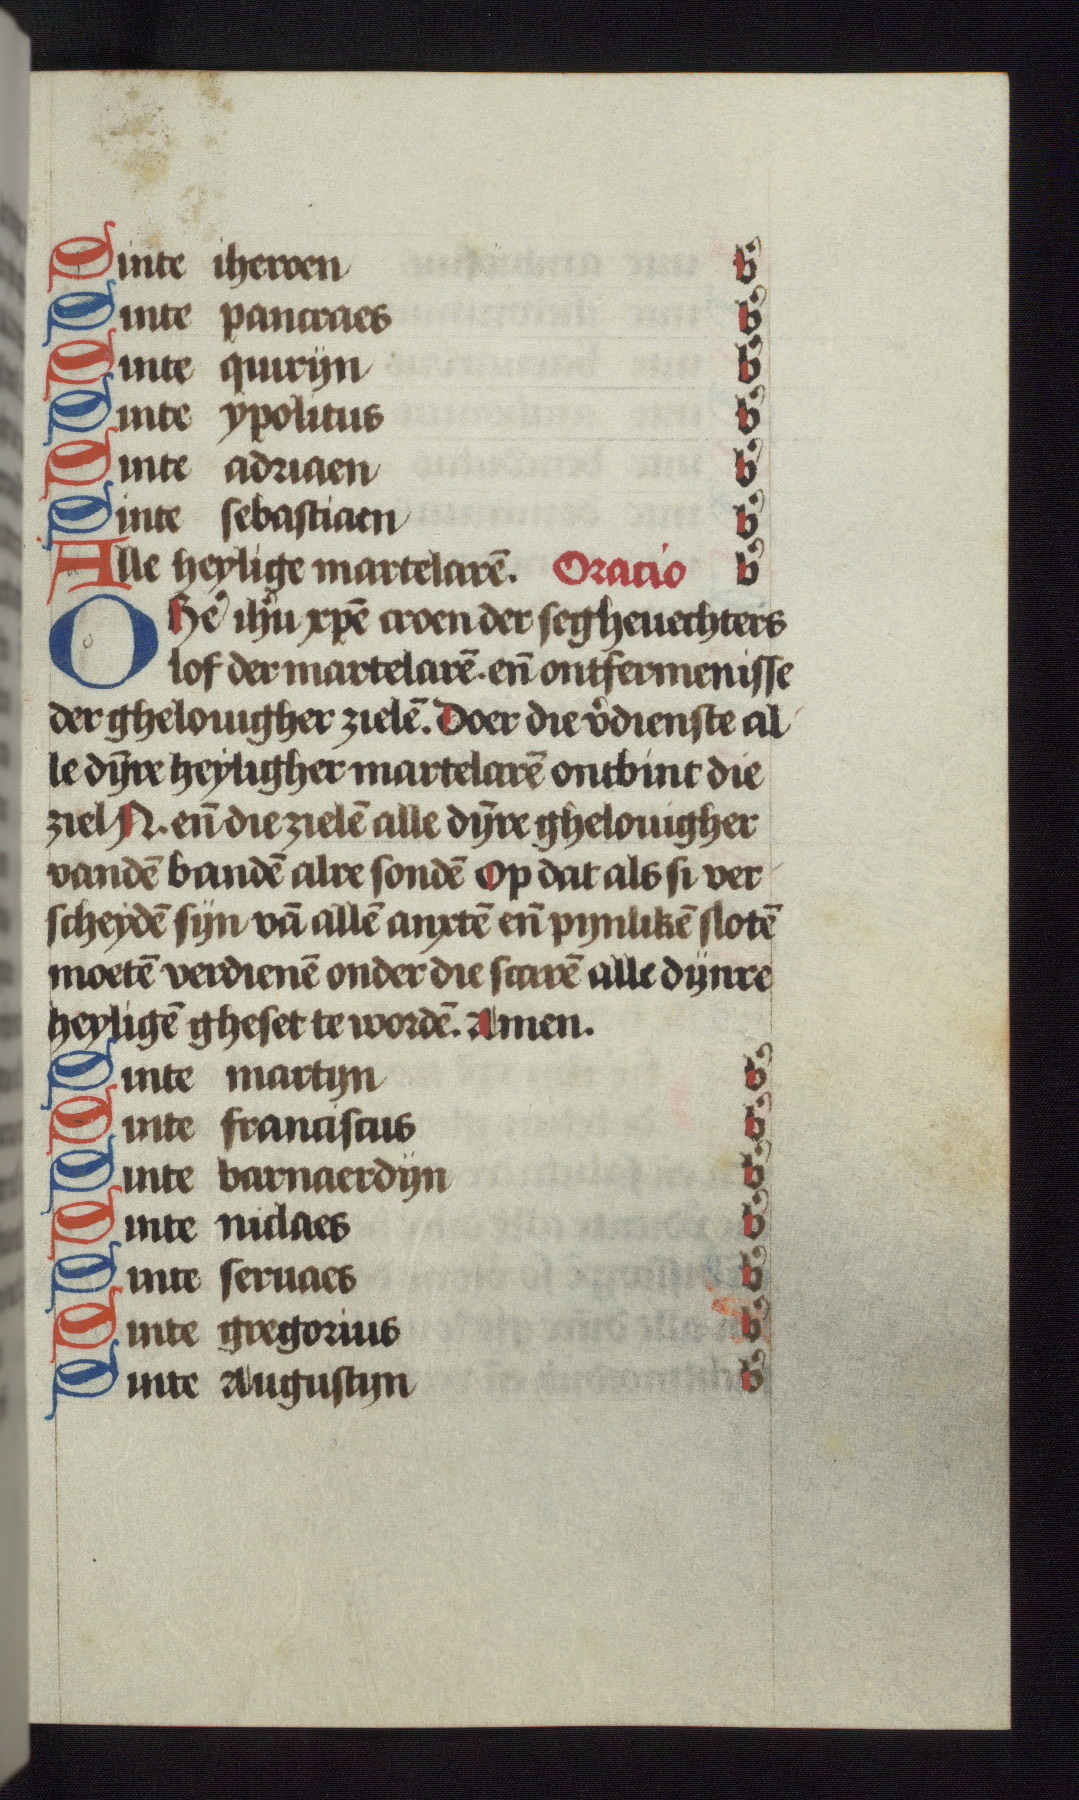 Sinte iheroen b
Sinte pancraes b
Sinte quirijn b
Sinte ypolitus b
Sinte adriaen b
Sinte sebastiaen b
Alle heylige martelarē. Oracio b
O Hē ihū xpē croen der segheuechters
lof der martelarē. en̄ ontfermenisse
der ghelouigher zielē. Doer die v̄dienste al
le dȳre heyligher martelarē ontbint die
ziel N. en̄ die zielē alle dȳre ghelouigher
vandē bandē alre sondē Op dat als si ver
scheydē sijn vā allē anxtē en̄ pijnlikē slotē
moetē verdienē onder die scarē alle dijnre
heyligē gheset te wordē. Amen.
Sinte martijn b
Sinte franciscus b
Sinte barnaerdijn b
Sinte niclaes b
Sinte seruaes b
Sinte gregorius b
Sinte Augustijn b